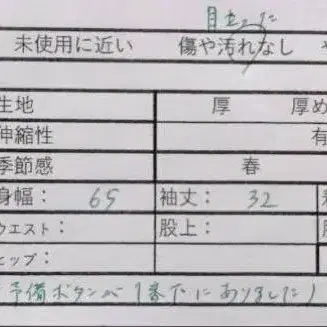 目立った
未使用に近い 傷や汚れなし
生地 厚 厚め
伸縮性 有
季節感 春
身幅： 65 袖丈： 32
ウエスト： 股上：
ヒップ：
予備ボタンが1番下にありました